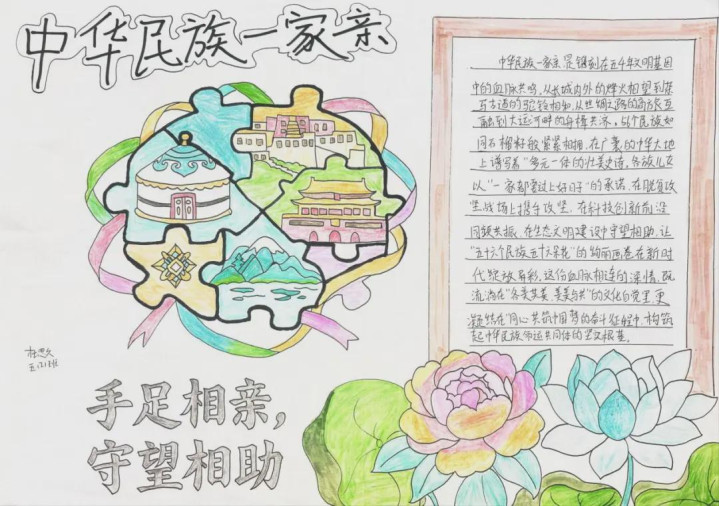 中华民族一家亲
中华民族一家亲是镌刻在五千年文明基因
中的血脉共鸣，从长城内外的烽火相望到茶
马古道的驼铃相知，从丝绸之路的商旅互
融到大运河畔的舟楫共济，56个民族如
同石榴籽般紧紧相拥，在广袤的中华大地
上谱写着“多元一体的壮美史诗，各族儿女
以“一家都要过上好日子”的承诺，在脱贫攻
坚战场上携手攻坚，在科技创新前沿
同频共振，在生态文明建设中守望相助，让
“五十六个民族五十六朵花”的绚丽画卷在新时
代绽放异彩，这份血脉相连的深情，既
流淌在“各美其美，美美与共”的文化自觉里，更
凝结在“同心共筑中国梦的奋斗征程中，构筑
起中华民族命运共同体的坚实根基。
手足相亲，
守望相助